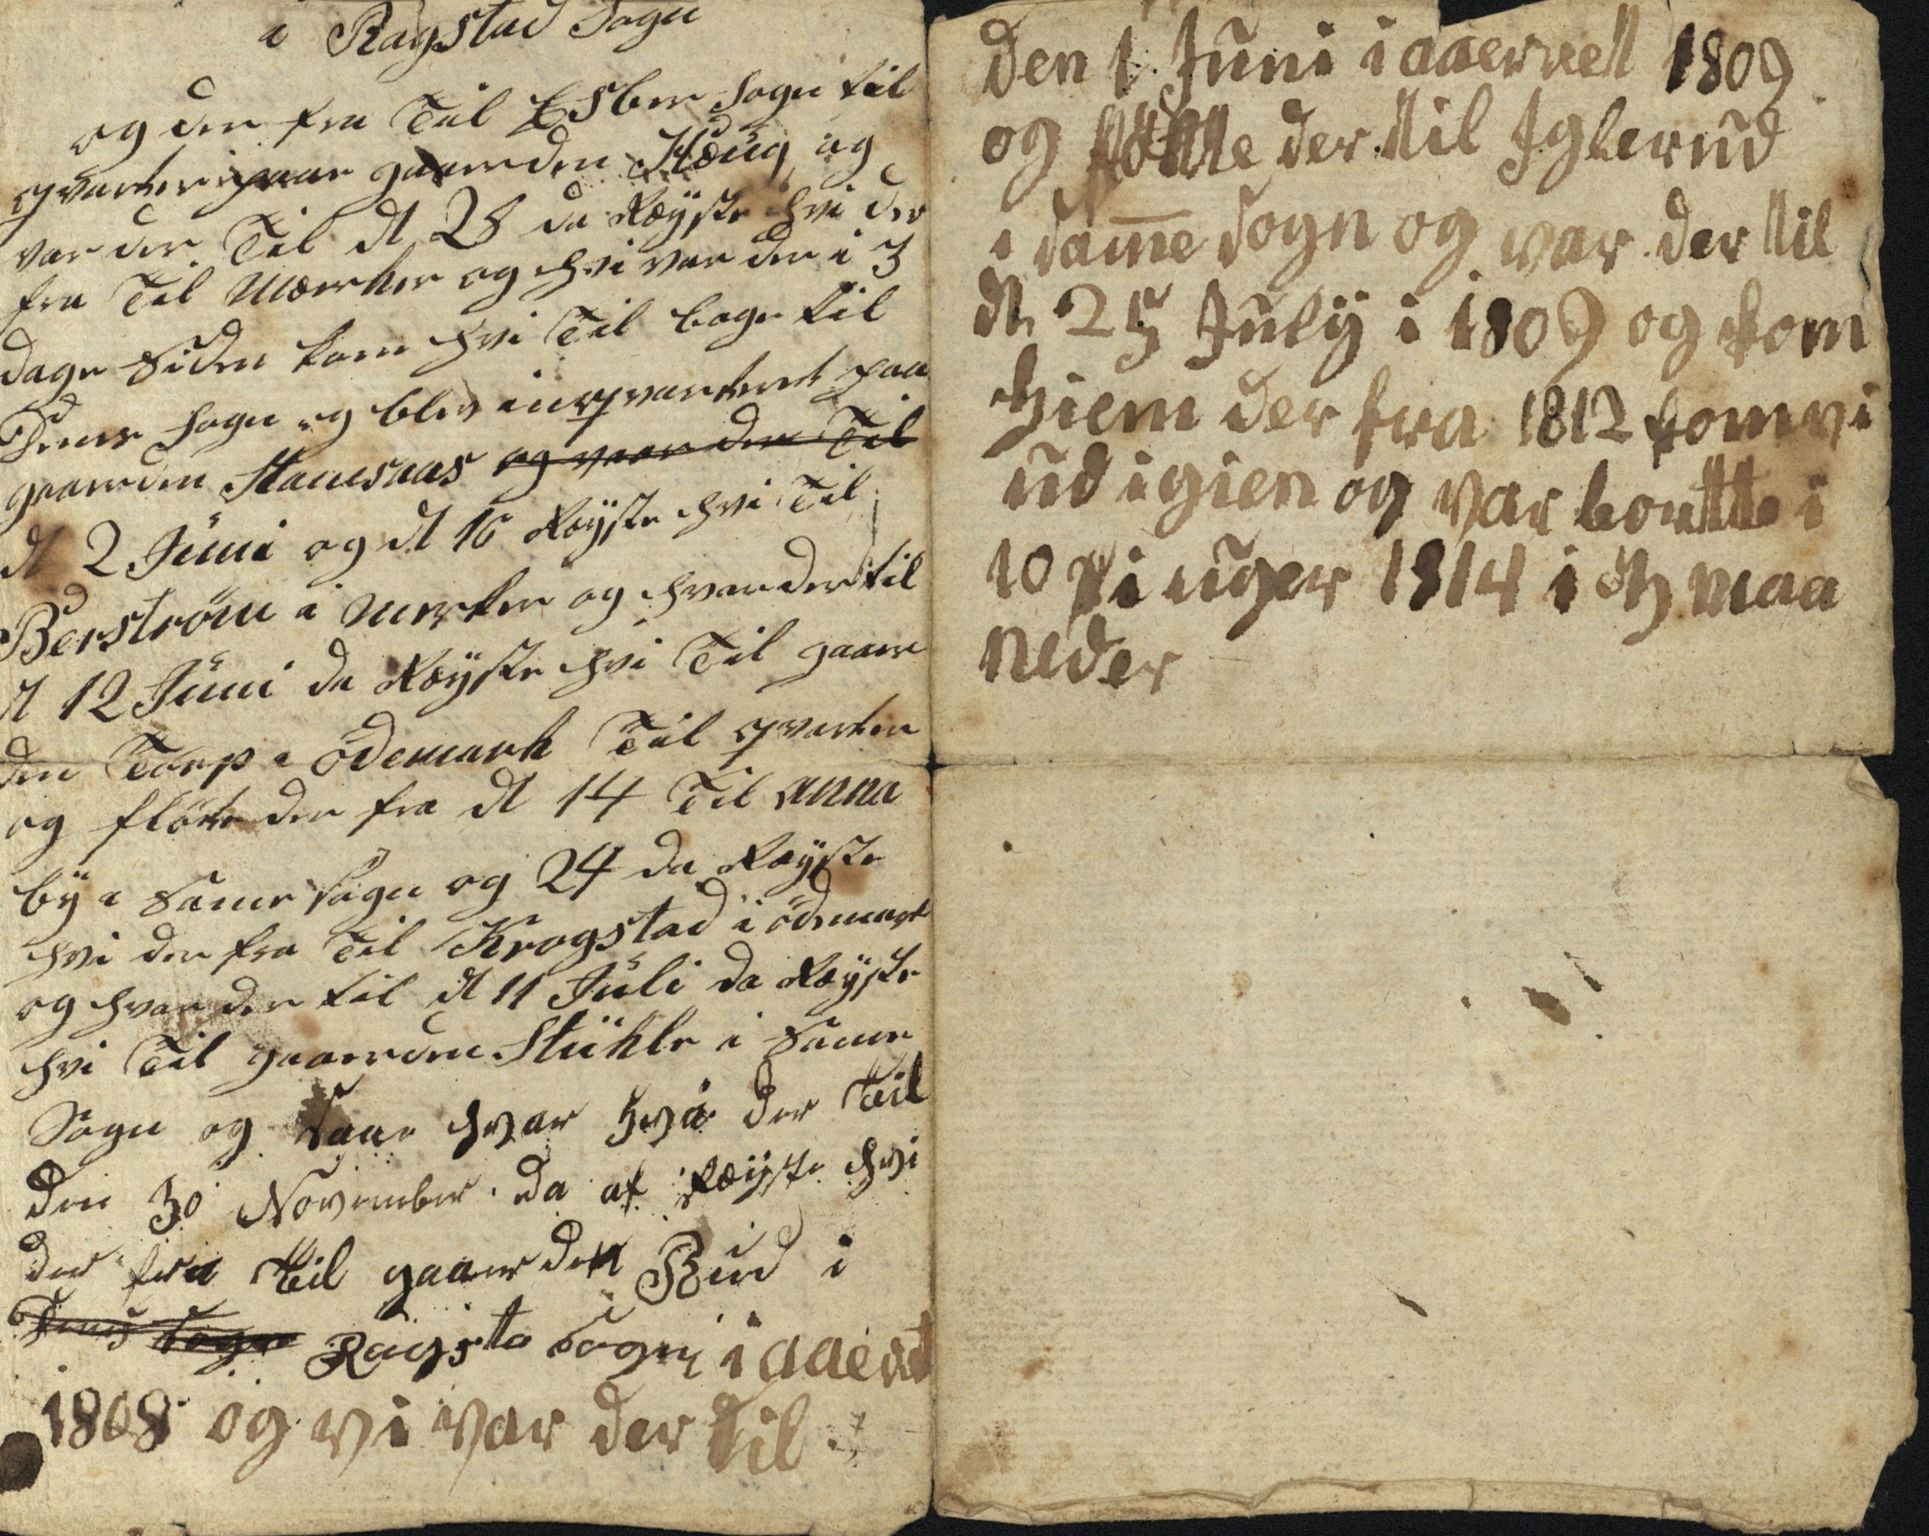 i Ragstad Sogn
og der fra Til Esber sogn til
qvarter paa gaarden Haug og
var der Til dt 28 da Reyste hvi der
fra Til Mærker og hvi var der i 3
dage siden kom hvi Til bage til
Dens sogn og blev inqvartert paa
gaarden Hanesaas og vaar der Til
dt 2 Juni og dt 16 Reyste hvi Til
Berström i Merker og hvar der til
dt 12 Juni da Reyste hvi Til gaar
den Torp i ödemark Til qvarter
og flöte der fra dt 14 Til anna
bÿ i same sogn og 24 da Reyste
hvi der fra Til Krogstad i ödemark
og hvar der til dt 11 Juli da Reyste
hvi Til gaarden Stühle i same
Sogn og saa hvar hvi der til
den 30 November da af Reyste hvi
der fra til gaarden Rud i
Sogn Ragsta Sogn i aaeret
1808 og vi var der til
den 1 Juni i aaerrett 1809
og flötte der til Iglerud
i same sogn og var der til
dt 25 Julÿ i 1809 og kom
hiem der fra 1812 kom vi
ud igien og var bortte i
10 uger 1814 i maa
neder